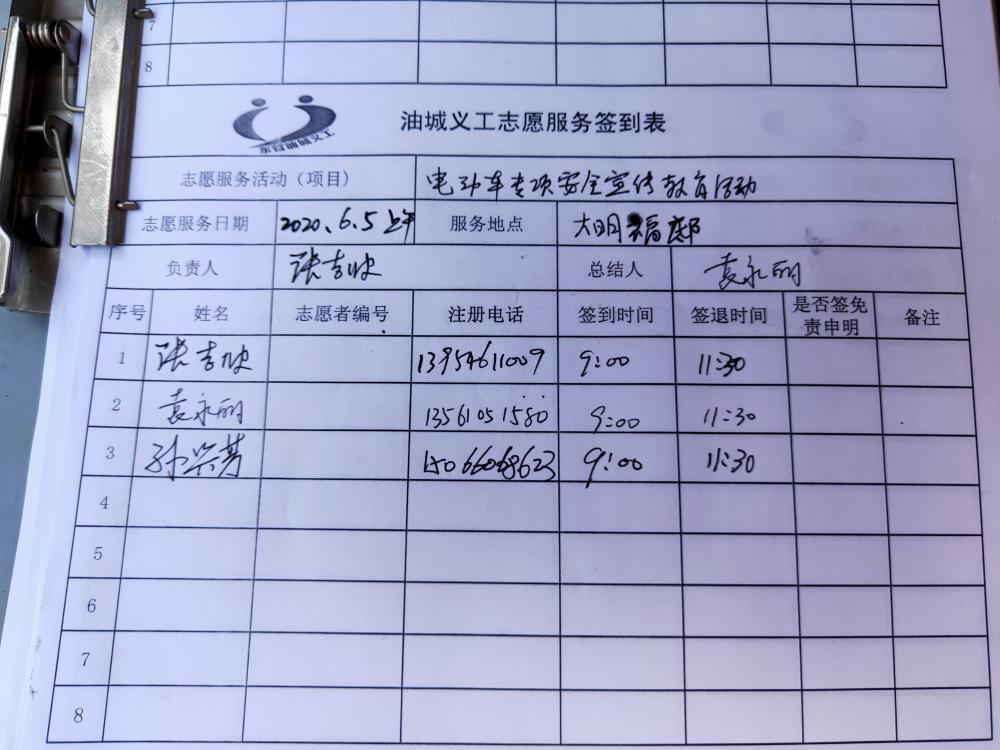 7
8
东营油城义工
油城义工志愿服务签到表
志愿服务活动（项目） 电动车专项安全宣传教育活动
志愿服务日期 2020.6.5上午 服务地点 大明福邸
负责人 张吉波 总结人 袁永丽
序号 姓名 志愿者编号 注册电话 签到时间 签退时间 是否签免责申明 备注
1 张吉波 13954611009 9:00 11:30
2 袁永丽 13561051580 9:00 11:30
3 孙兴芳 15066068623 9:00 11:30
4
5
6
7
8